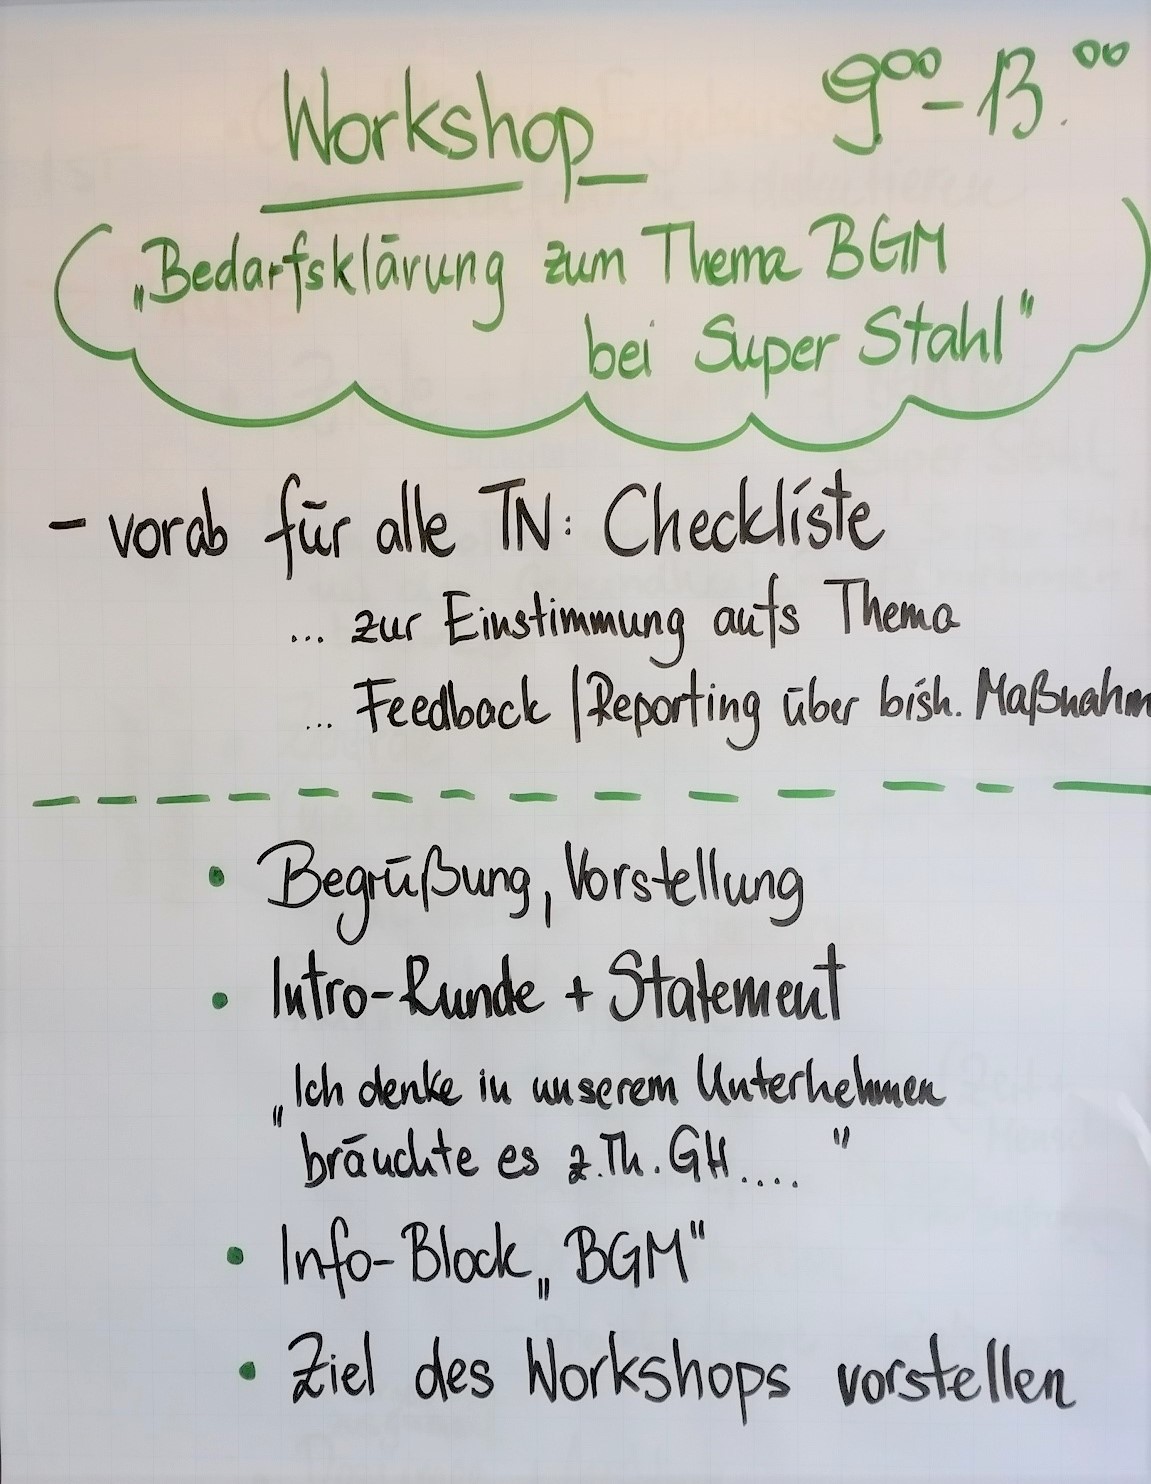 Workshop 9⁰⁰ - 13.⁰⁰
„Bedarfsklärung zum Thema BGM
bei Super Stahl"
- vorab für alle TN: Checkliste
... zur Einstimmung aufs Thema
... Feedback / Reporting über bish. Maßnahm
• Begrüßung, Vorstellung
• Intro-Runde + Statement
„Ich denke in unserem Unternehmen
bräuchte es z.Th. GH .... "
• Info-Block „BGM"
• Ziel des Workshops vorstellen